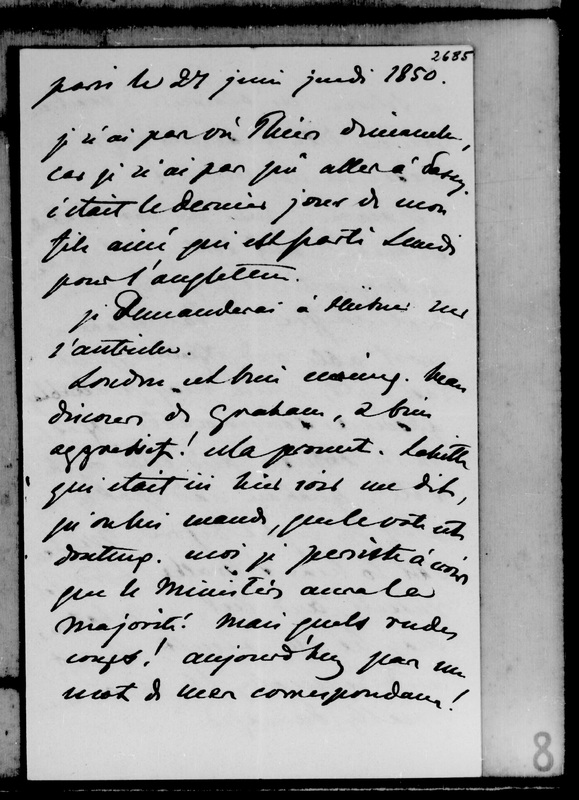 2685
paris le 27 juin jeudi 1850.
je n'ai pas vu Thiers dimanche,
car je n'ai pas pu aller à Passy.
c'était le dernier jour de mon
fils ainé qui est parti Lundi
pour l'angleterre.
je Demanderai à Hübner
l'autriche.
London est bien
discours de Graham, & bien
aggressif! cela promet.
qui était ici hier soir me dit,
qu'on lui mande, que le vote est
douteux. moi je persiste à croire
que le Ministère aura la
majorité! mais quels rudes
coups! aujourd'huy pas un
mot de mes correspondans!
8